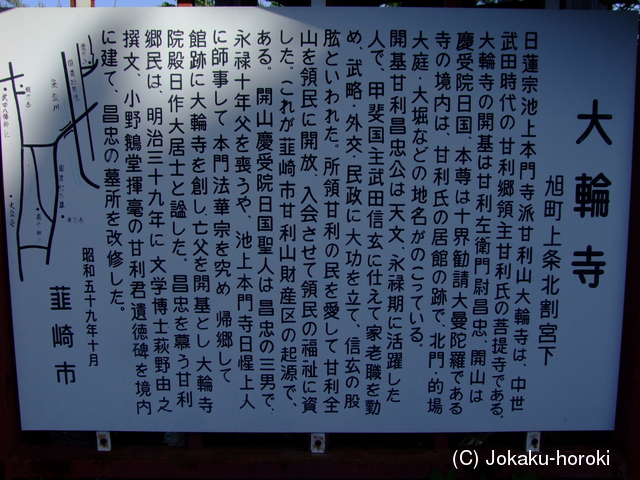 大輪寺
旭町上条北割宮下
日蓮宗池上本門寺派甘利山大輪寺は、中世
武田時代の甘利郷領主甘利氏の菩提寺である。
大輪寺の開基は甘利左衛門尉昌忠、開山は
慶受院日国、本尊は十界勧請大曼陀羅である
寺の境内は、甘利氏の居館の跡で、北門・的場
大庭・大堀などの地名がのこっている。
開基甘利昌忠公は天文、永禄期に活躍した
人で、甲斐国主武田信玄に仕えて家老職を勤
め、武略・外交・民政に大功を立て、信玄の股
肱といわれた。所領甘利の民を愛して甘利全
山を領民に開放、入会させて領民の福祉に資
した。これが韮崎市甘利山財産区の起源で、
ある。開山慶受院日国聖人は昌忠の三男で、
永禄十年父を喪うや、池上本門寺日惺上人
に師事して本門法華宗を究め帰郷して
館跡に大輪寺を創し亡父を開基とし大輪寺
院殿日作大居士と諡した。昌忠を慕う甘利
郷民は、明治三十九年に文学博士萩野由之
撰文、小野鵞堂揮毫の甘利君遺徳碑を境内
に建て、昌忠の墓所を改修した。
昭和五十九年十月
韮崎市
武田八幡神社
大公寺
(C) Jokaku-horoki